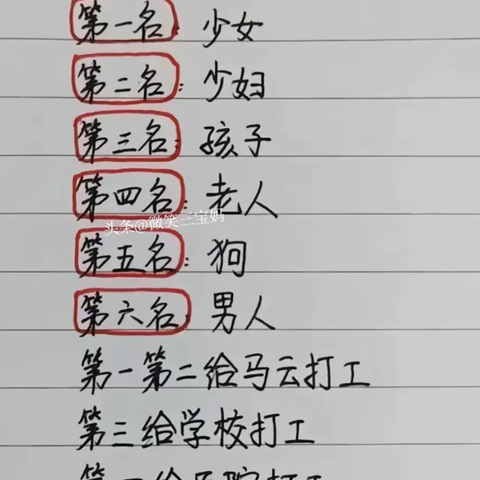 第一名：少女
第二名：少妇
第三名：孩子
第四名：老人
头条@微笑三宝妈
第五名：狗
第六名：男人
第一第二给马云打工
第三给学校打工